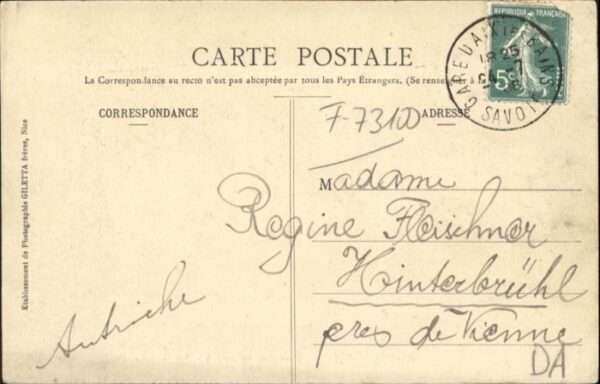 RÉPUBLIQUE FRANÇAISE
5c
GARE D'AIX-LES-BAINS
18 25
7
SAVOIE
CARTE POSTALE
La Correspondance au recto n'est pas acceptée par tous les Pays Étrangers. (Se renseigner
CORRESPONDANCE
ADRESSE
F-73100
Madame
Regine Fleischner
Hinterbrühl
près de Vienne
Autriche
DA
Etablissement de Photographie GILETTA frères, Nice